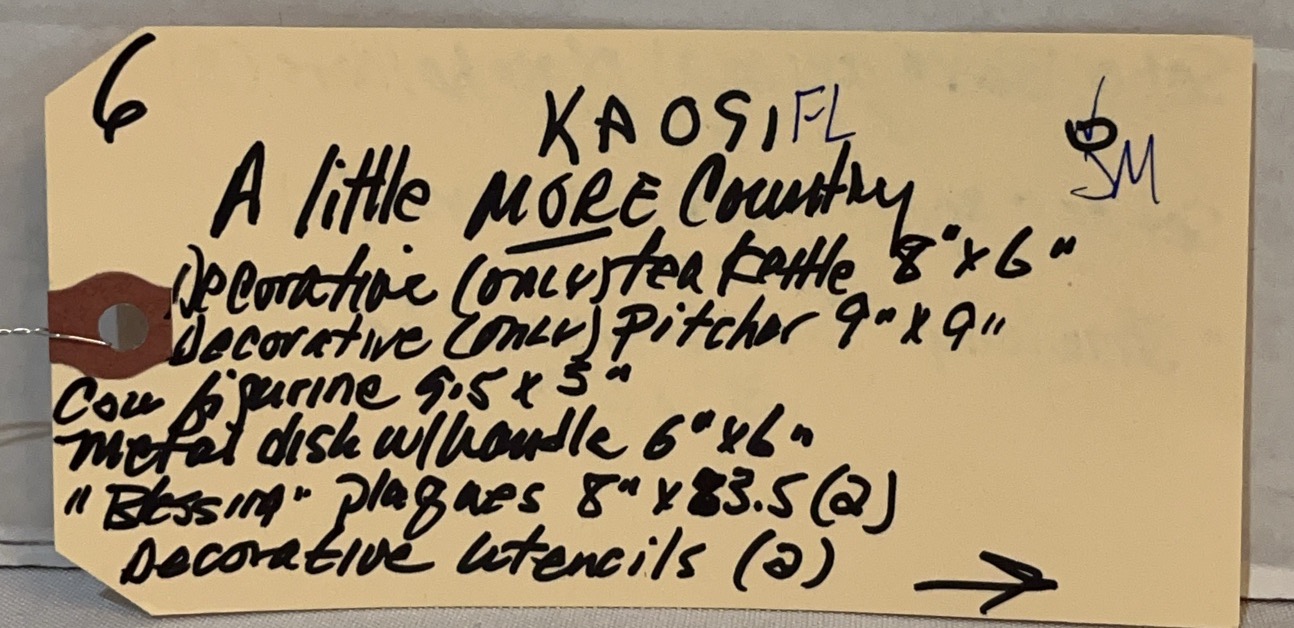 6
KAO91FL
JM
A little MORE Country
Decorative (ONLY) tea kettle 8" x 6"
Decorative (ONLY) Pitcher 9" x 9"
Cow figurine 9.5 x 5"
Metal disk w/handle 6" x 6"
"Blessing" plaques 8" x 3.5 (2)
Decorative utencils (2)
→